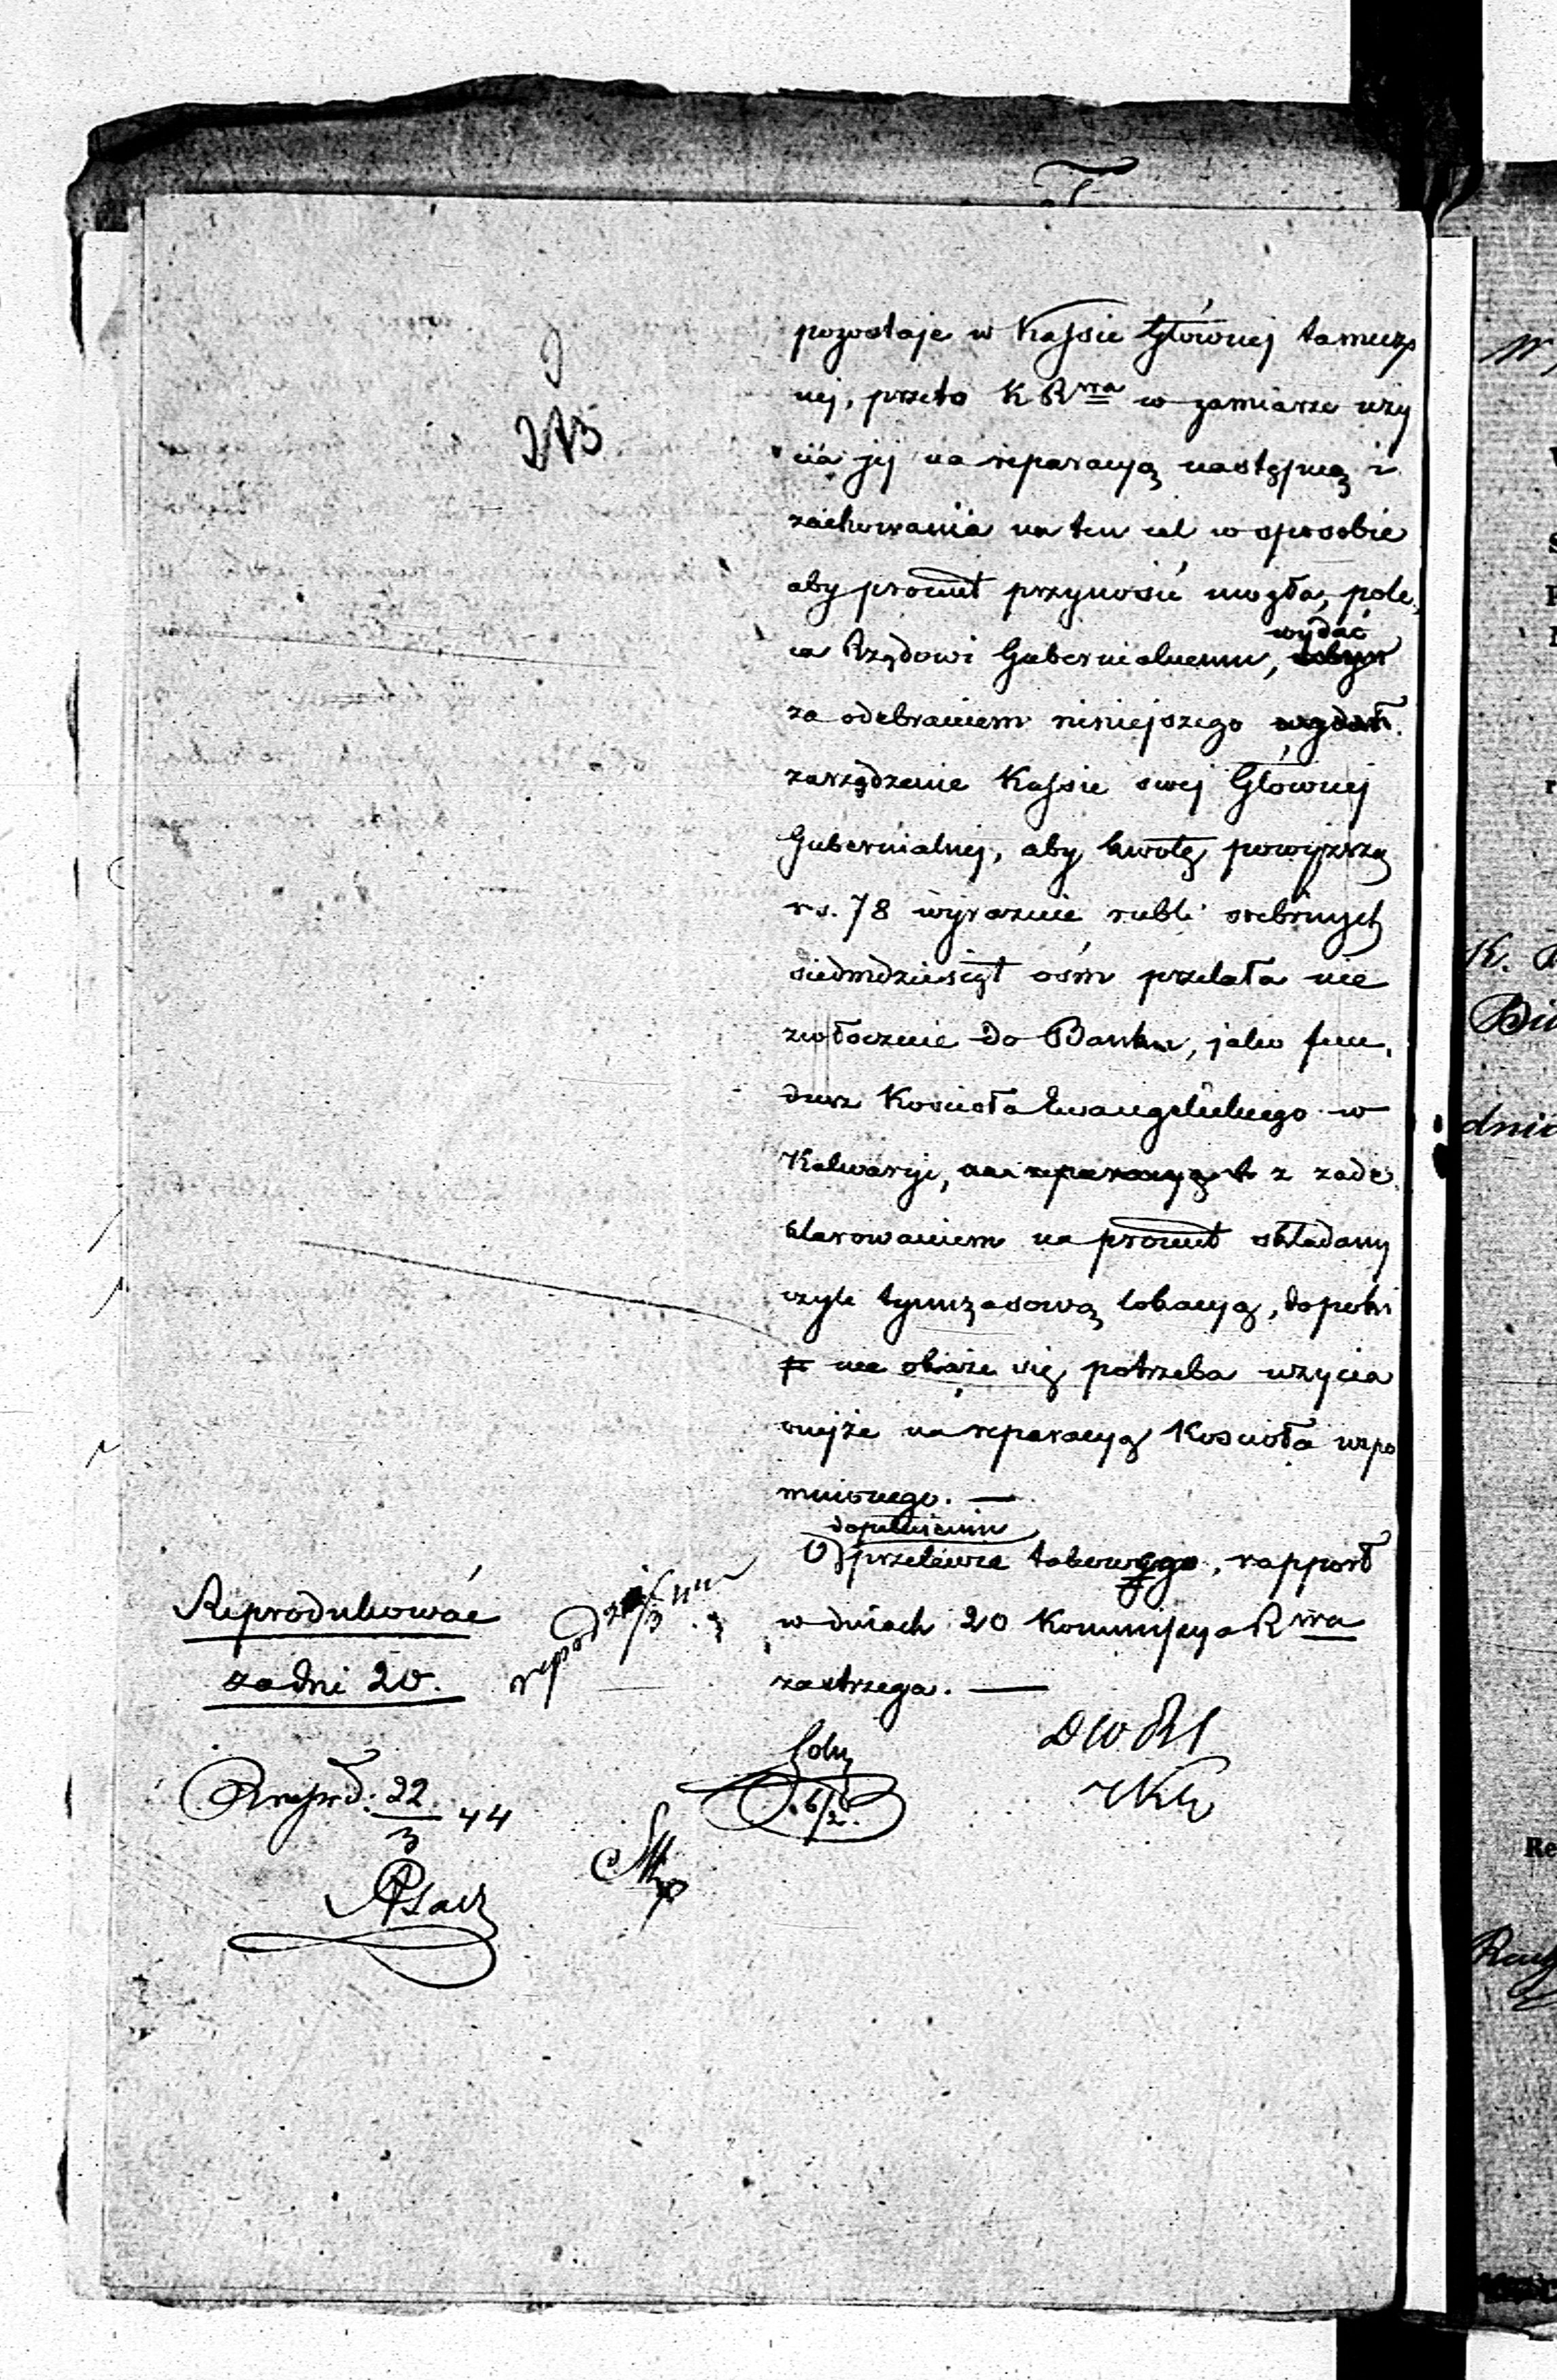 pozostaje w Kassie Głównej tamecz
nej, przeto K R wa w zamiarze uży
cia jej na reparacyą następną i
zachowania na ten cel w sposobie
aby procent przynosić mogła, pole
ca Rządowi Gubernialnemu, wydać
za odebraniem niniejszego
zarządzenie Kassie swej Głównej
Gubernialnej, aby kwotę powyższą
rs. 78 wyraznie rubli srebrnych
siedmdziesiąt ośm przelała nie
zwłocznie do Banku, jako fun
dusz Kościoła Ewangelickiego w
Kalwaryi, na reparacyą z zade
klarowaniem na procent składany
czyli tymczasową lokacyą, dopóki
nie okaże się potrzeba użycia
onejże na reparacyą Kościoła wspo
mnionego. —
dopełnieniu
O przelewie takowego, rapport
w dniach 20 Kommissya R wa
zastrzega. —
Reprodukować
za dni 20.
22
3
44
6/2.